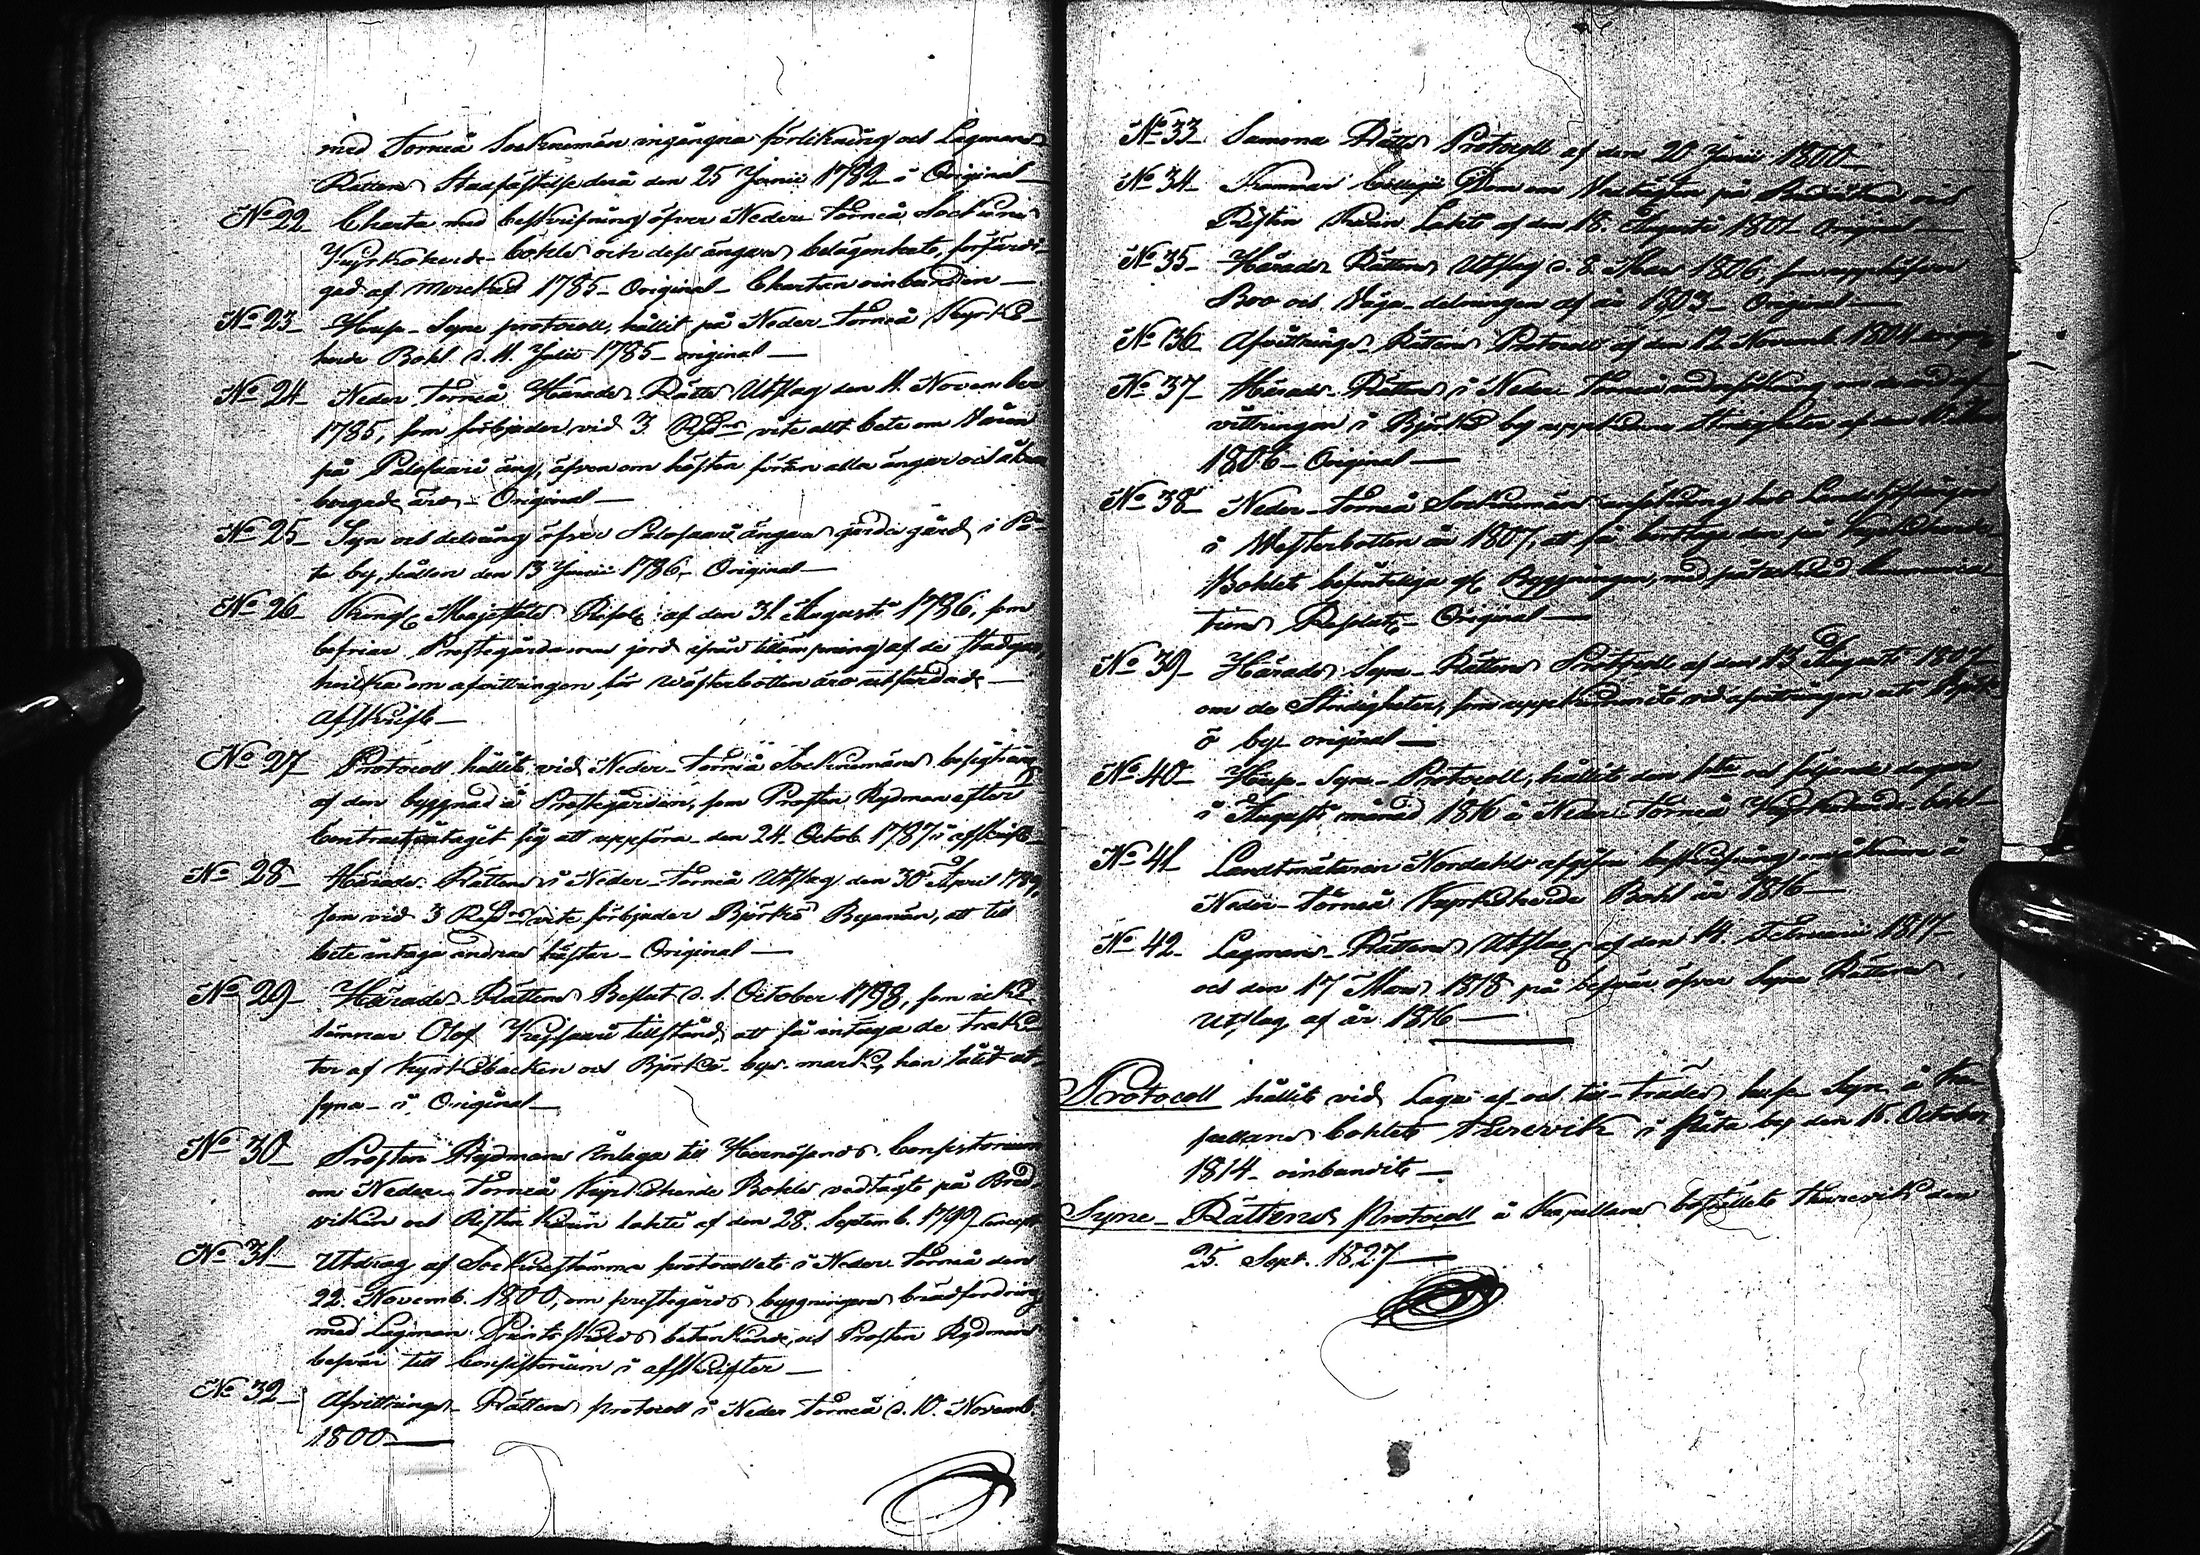 med Torneå Socknemän ingångna förlikning och Lagmans
Rättens Stadfästelse derå den 25 Junii 1782 i Original
No 22 Charta med beskrifning öfver Neder Torneå Sockns
Kyrkoherde-bohls och dess ängars belägenhet, förfärdi-
gad af 1785 - Original - Chartan oinbunden
No 23 Huse-Syne protocoll, hållit på Neder-Torneå Kyrko-
herde Bohl d. 11. Julii 1785 - original
No 24 Neder Torneå Härads Rätts Utslag den 11. November
1785, som förbjuder vid 3. Rds vite allt bete om Våren
på Palosaari äng, äfven om hösten förrän alla ängar och åkrar
bergade äro - Original
No 25 Syn och delning öfver Palosaari ängens gärdesgård i Pä-
te by, hållen den 13 Junii 1786 - Original
No 26 Kongl Majestäts Resol: af den 31. Augusti 1786, som
befriar Prestegårdarnes jord ifrån tillämpning af de stadgar,
hvilka om afvittringen för Wästerbotten äro utfärdade
Afskrift
No 27 Protocoll hållit vid Neder-Torneå Socknemäns besigtning
af den byggnad å Prestegården, som Prosten Rydman efter
Contract åtagit sig att uppföra den 24. Octob. 1787 i afskrift
No 28 Härads Rättens i Neder-Torneå Utslag den 30 April 1789,
som vid 3 Rds vite förbjuder Björkö Byamän, att till
bete intaga andras hästar - Original
No 29 Härads Rättens Beslut d. 1. October 1798, som icke
lämnar Olof tillstånd, att få intaga de trak-
ter af Kyrkobacken och Björkö-bys mark, han låtit af-
syna - i Original
No 30 Prosten Rydmans Inlaga till Hernösands Consistorium
om Neder Torneå Kyrkoherde Bohls vedtägt på Bred-
viken och Resten af den 28. Septemb. 1799 Concept
No 31 Utdrag af Sockenstämma protocollet i Neder Torneå den
22. Novemb. 1800, om prestegårds byggningens brädfordring
med Lagman betänkande, och Prosten Rydmans
besvär till Consistorium i afskrifter
No 32 Afvittrings-Rättens protocoll i Neder Torneå d. 10. Novemb.
1800
No 33 Samma Rätts Protocoll af den 20 Junii 1800
No 34 Kammar Collegii Dom om på och
Resten af den 18. Augusti 1801 Original
No 35 Härads Rättens Utslag d. 8. Mars 1806, som upphäfver
Bro och Väga-delningen af år 1803 - Original
No 36 Afvittrings-Rättens Protocoll af den 12 Novemb 1804
No 37 Härads-Rättens i Neder-Torneå undersökning om de vid af-
vittringen i Björkö by uppkomne stridigheter af den
1806 - Original
No 38 Neder-Torneå Socknemäns ansökning hos Landshöfdingen
i Westerbotten år 1807, att få borttaga den på Kyrkoherde
Bohlet befinteliga Byggningen, med påtecknad
tions Resolut - Original
No 39 Härads Syne-Rättens Protocoll af den 13 Augusti 1807
om de Stridigheter, som uppkommit vid afvittringen uti Björk-
ö by - original
No 40 Huse-Syne-Protocoll, hållit den 1sta och följande dagar
i Augusti månad 1816 å Neder-Torneå Kyrkoherde-bohl
No 41 Landtmätaren Nordahls afgifne beskrifning om åkern å
Neder-Torneå Kyrkoherde Bohl år 1816
No 42. Lagmans-Rättens Utslag af den 14. Februarii 1817
och den 17 Mars 1818 på besvär öfver Syne Rättens
Utslag af år 1816
Protocoll hållit vid Laga af och till-trädes huse Syn å Ka-
pellans bohlet Thurevik i Päte by den 15. October
1814 - oinbundit
Syne-Rättens Protocoll å Kapellans boställets Thurevik den
25. Sept. 1827